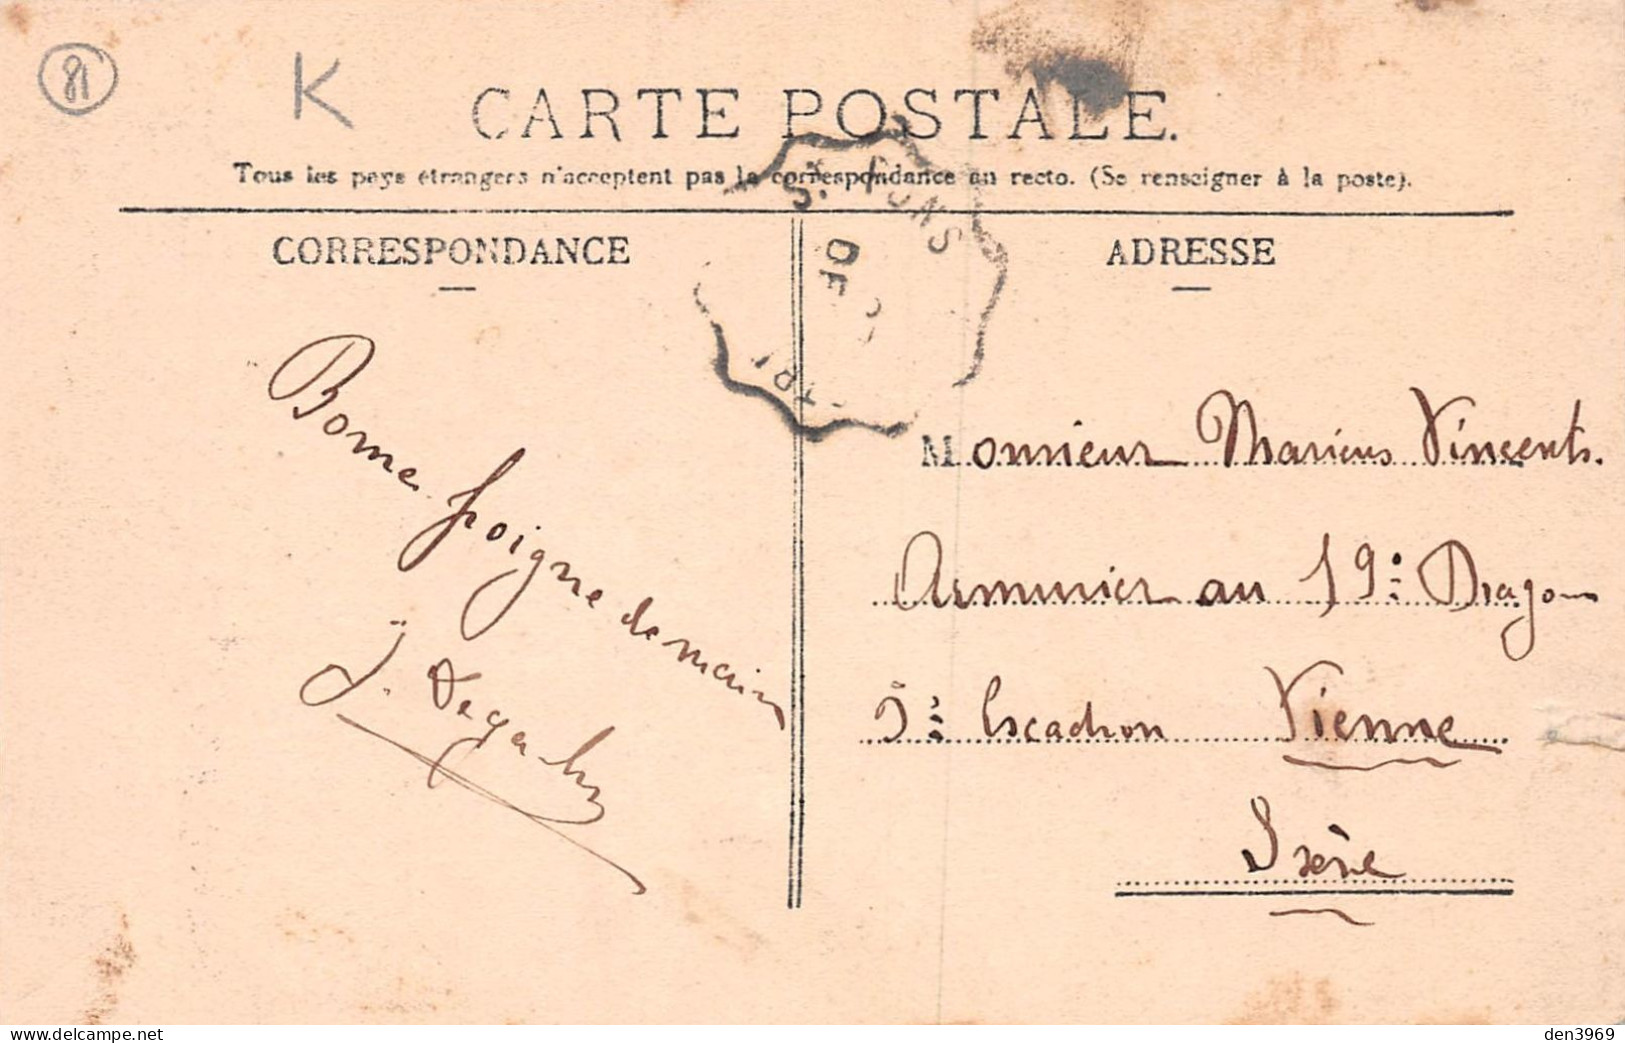 81
K
CARTE POSTALE.
Tous les pays étrangers n'acceptent pas la correspondance au recto. (Se renseigner à la poste).
CORRESPONDANCE
ADRESSE
Bonne poigne de main
J.
Monsieur Marius Vincents.
Armurier au 19e Dragon
5e Escadron Vienne
Isère
www.delcampe.net
den3969